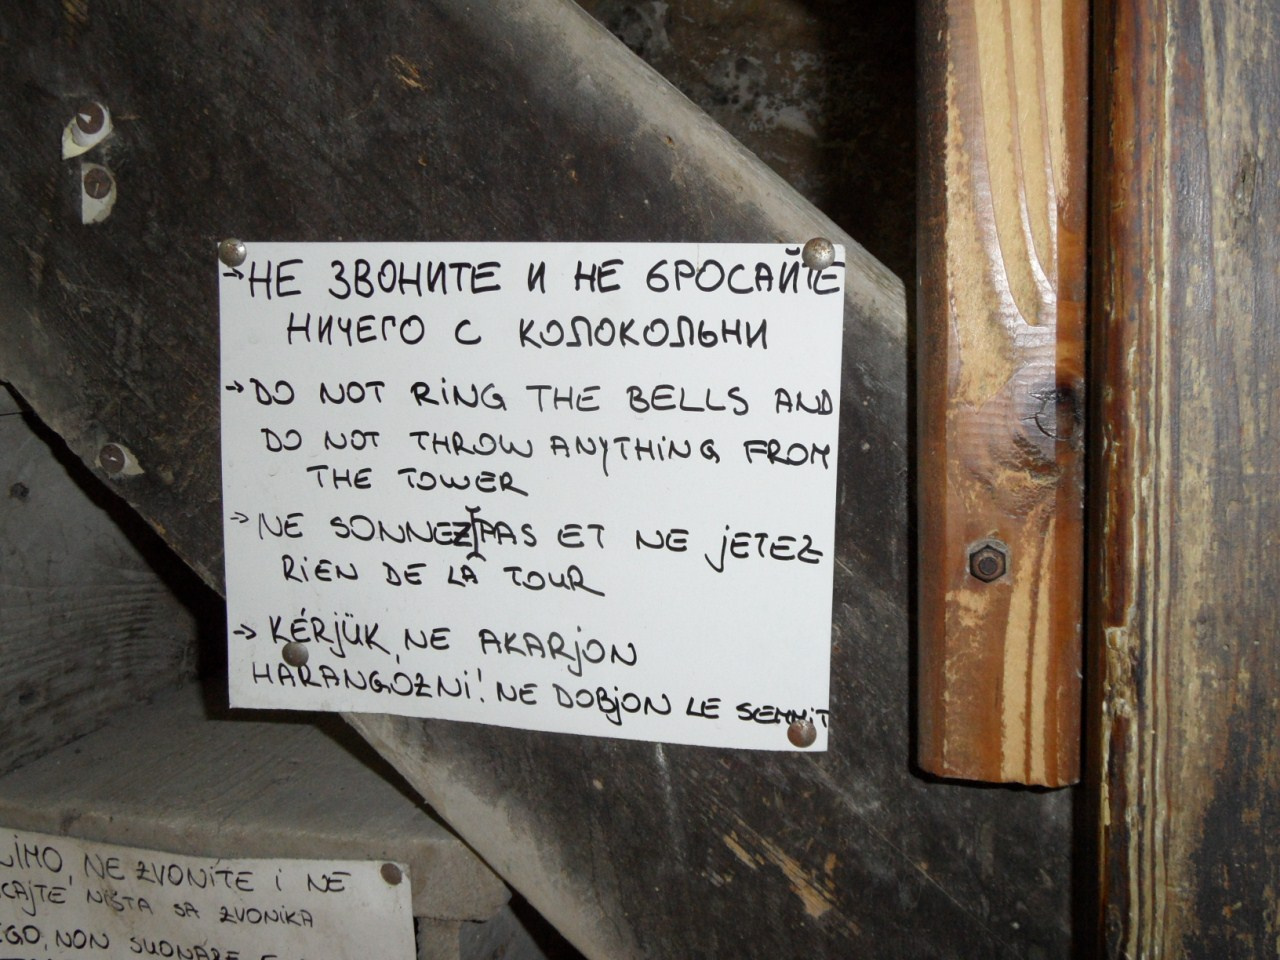 → НЕ ЗВОНИТЕ И НЕ БРОСАЙТЕ
НИЧЕГО С КОЛОКОЛЬНИ
→ DO NOT RiNG THE BELLS AND
DO NOT THROW ANYTHiNG FROM
THE TOWER
→ NE SONNEZ PAS ET NE jETEZ
RiEN DE LA TOUR
→ KÉRjÜK, NE AKARjON
HARANGOZNi! NE DOBjON LE SEMMiT
NE ZVONiTE i NE
NiŠTA SA ZVONiKA
NON SUONARE E